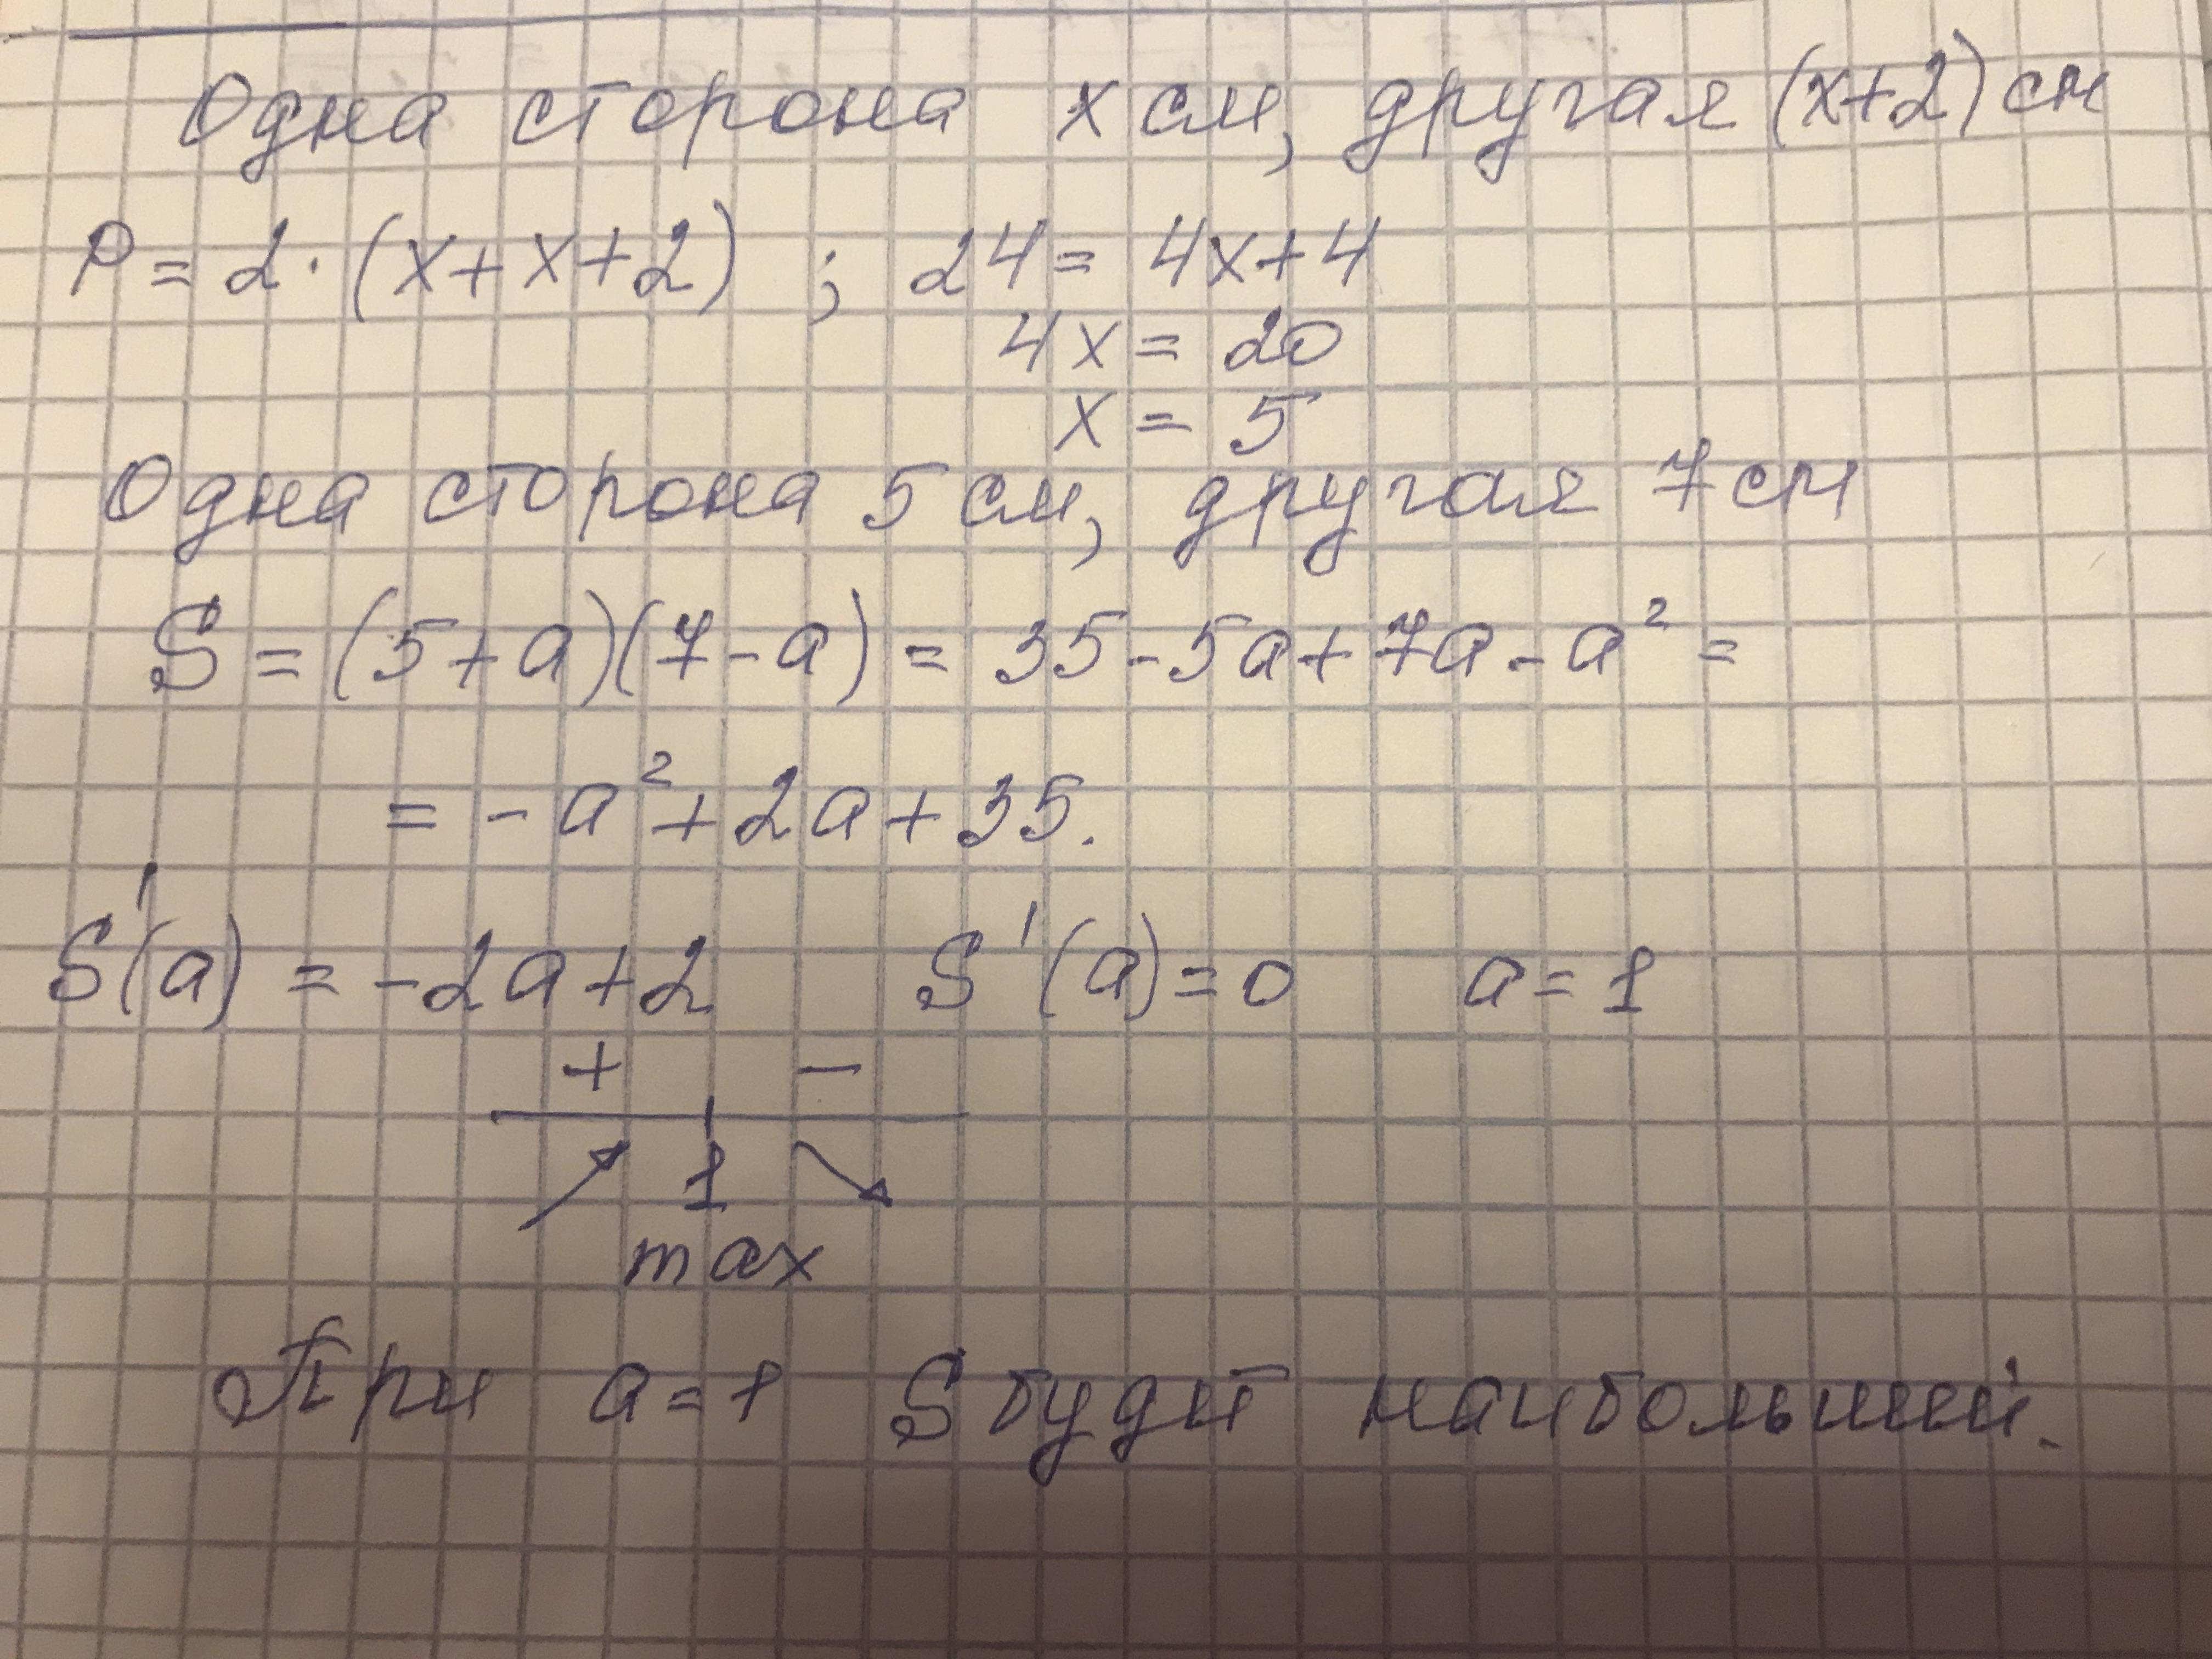 Одна сторона x см, другая (x+2) см
P = 2·(x+x+2) ; 24 = 4x+4
4x = 20
x = 5
Одна сторона 5 см, другая 7 см
S = (5+a)(7-a) = 35-5a+7a-a² =
= -a²+2a+35.
S'(a) = -2a+2 S'(a)=0 a=1
+ -
1
max
При a=1 S будет наибольшей.